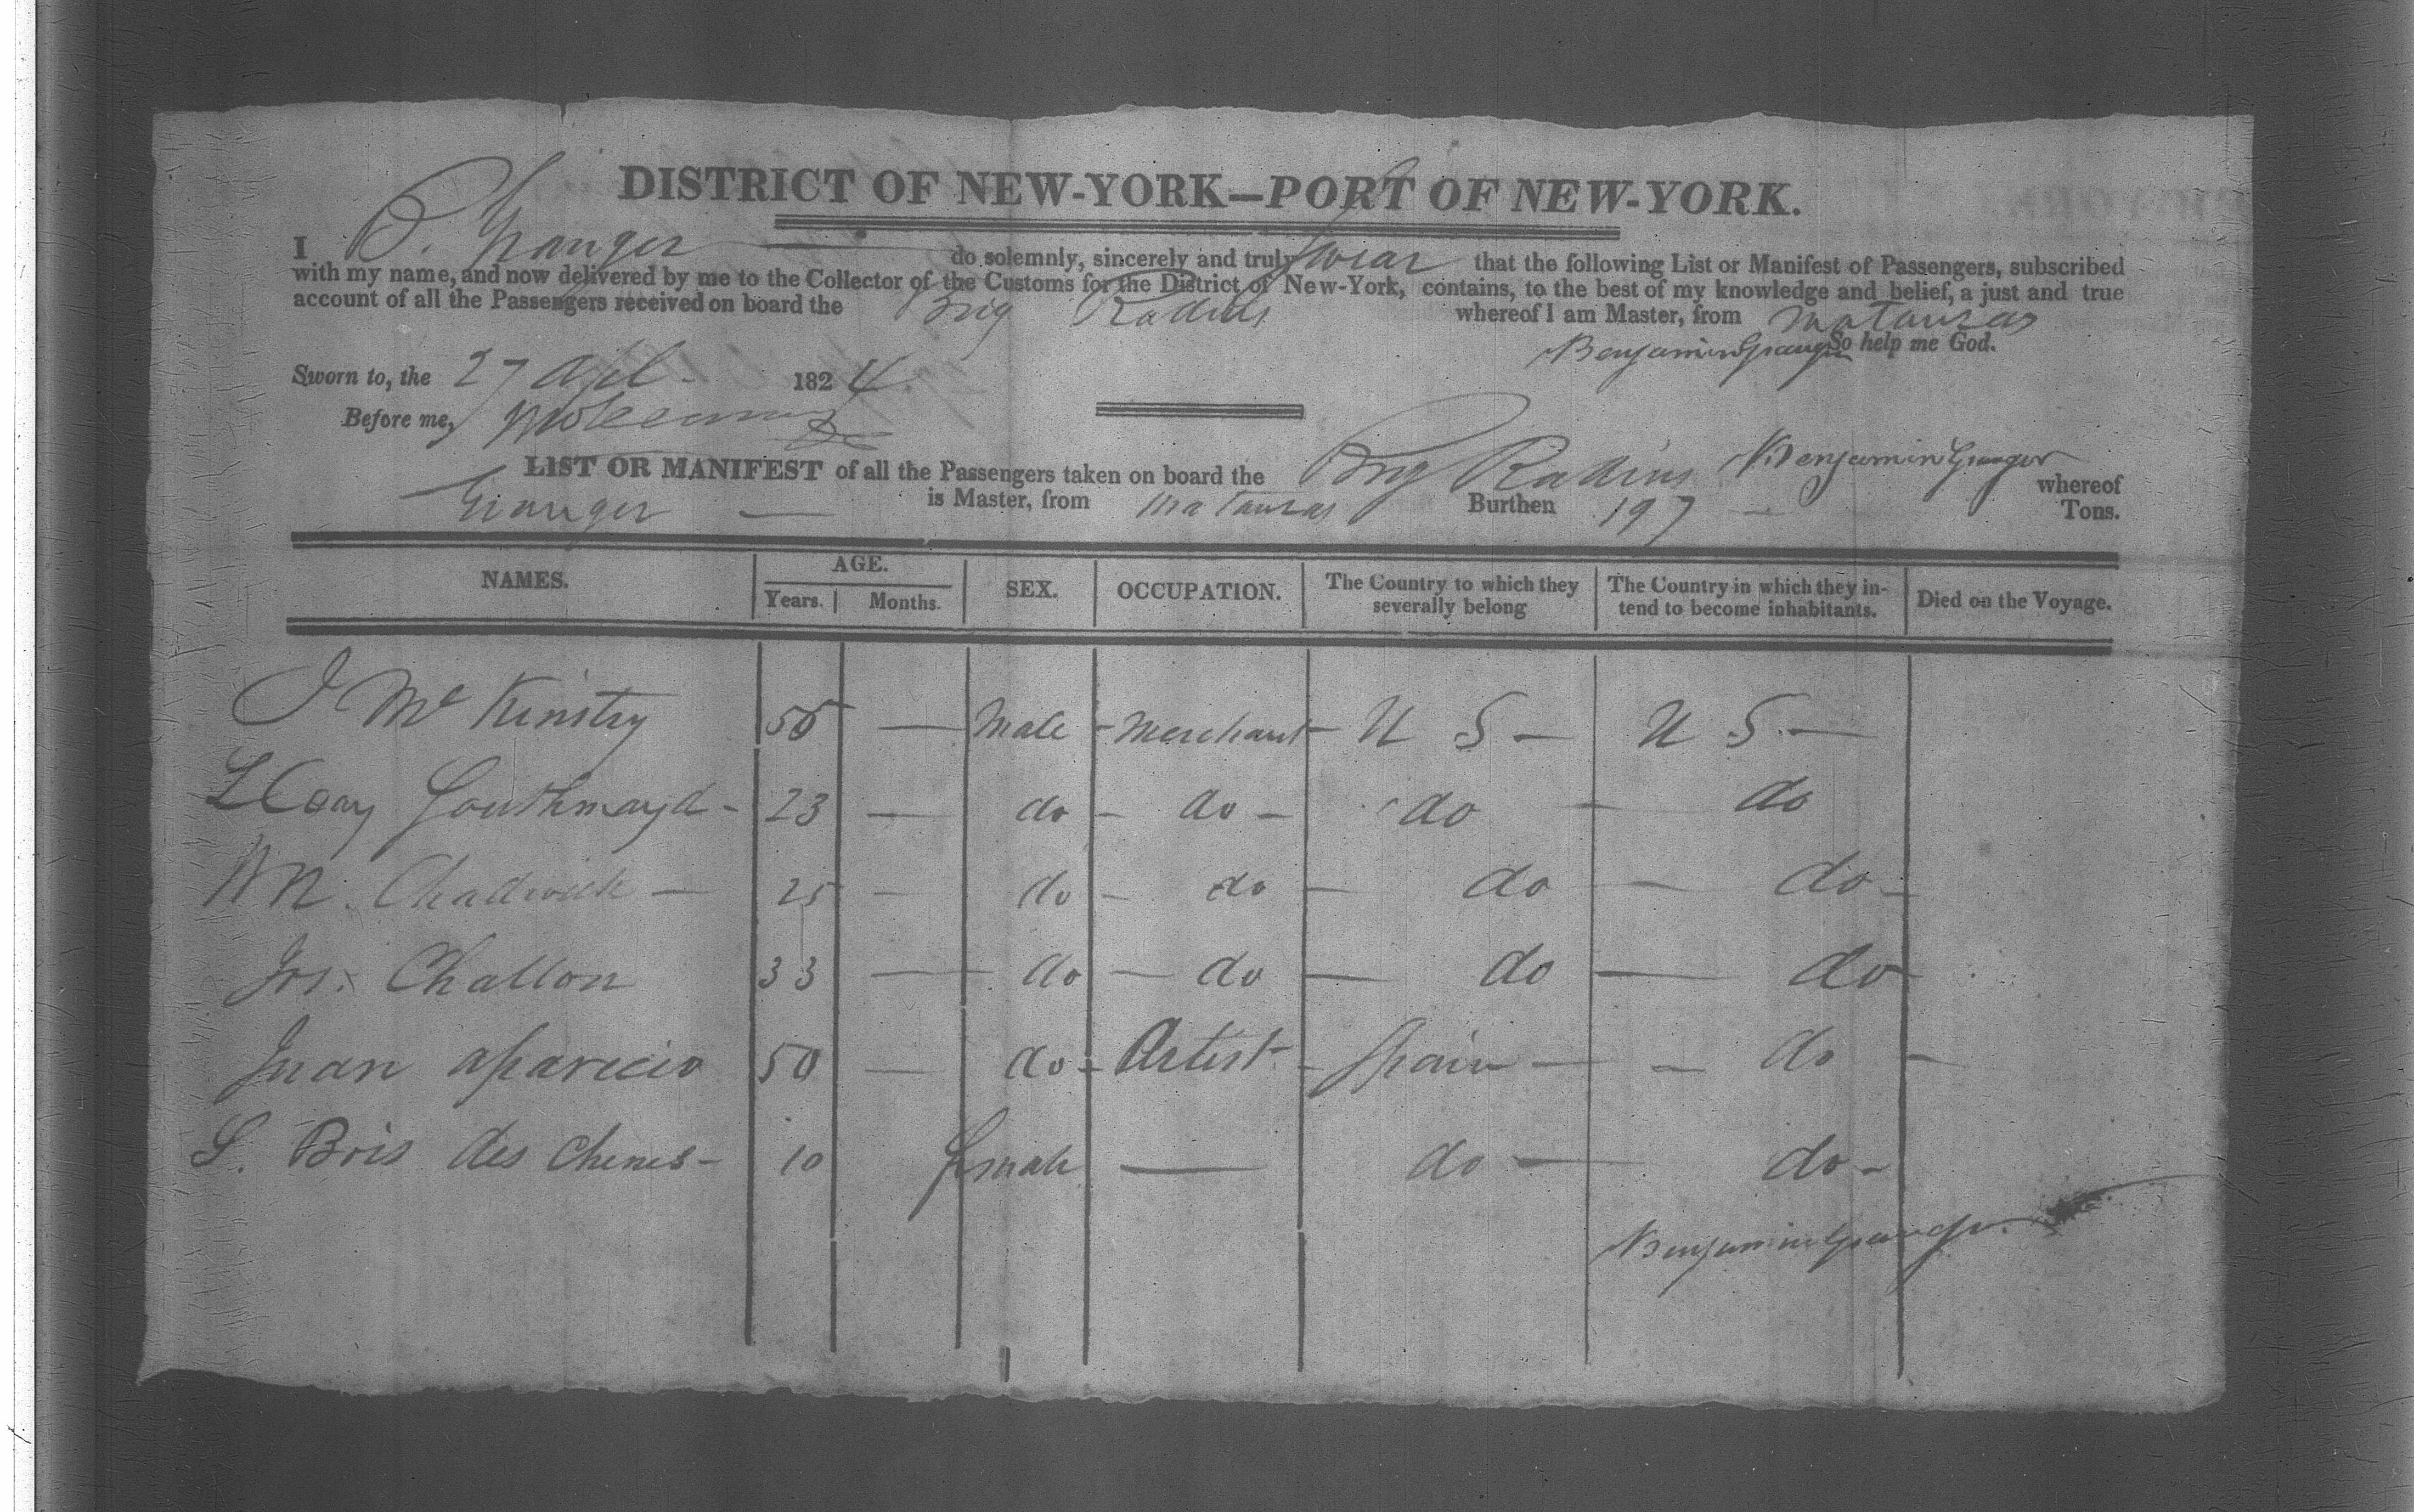 DISTRICT OF NEW-YORK—PORT OF NEW-YORK.
I B. Granger do solemnly, sincerely and truly swear that the following List or Manifest of Passengers, subscribed
with my name, and now delivered by me to the Collector of the Customs for the District of New-York, contains, to the best of my knowledge and belief, a just and true
account of all the Passengers received on board the Brig Radius whereof I am Master, from Matanzas
Benjamin Granger So help me God.
Sworn to, the 27 Apl 1824.
Before me,
LIST OR MANIFEST of all the Passengers taken on board the Brig Radius Benjamin Granger whereof
Granger — is Master, from Matanzas Burthen 197 — Tons.
NAMES. AGE. Years. Months. SEX. OCCUPATION. The Country to which they severally belong The Country in which they intend to become inhabitants. Died on the Voyage.
J Mc Kinstry 50 — Male - Merchant - U S — U S. —
Southmayd - 23 — do - do - do — do
Chadwick — 25 — do - do — do — do -
Jos. Challon 33 — do — do — do — do
Juan aparicio 50 — do - Artist - Spain — — do —
S. Bois des Chenes - 10 female — do — do -
Benjamin Granger